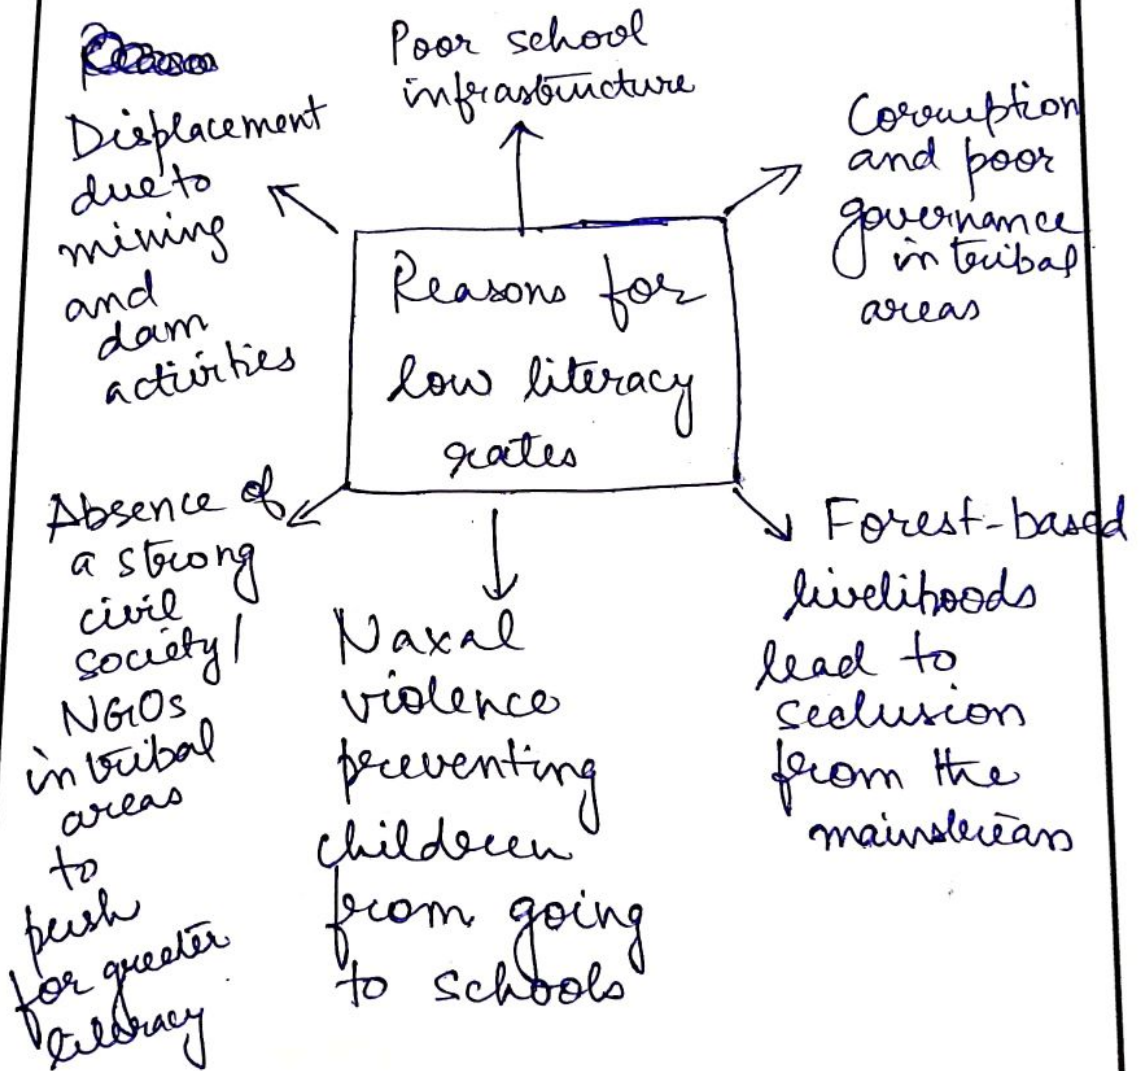 Poor school
infrastructure
Displacement
due to
mining
and
dam
activities
Corruption
and poor
governance
in tribal
areas
Reasons for
low literacy
rates
Absence of
a strong
civil
society/
NGOs
in tribal
areas
to
push
for greater
literacy
Naxal
violence
preventing
children
from going
to schools
Forest-based
livelihoods
lead to
seclusion
from the
mainstream